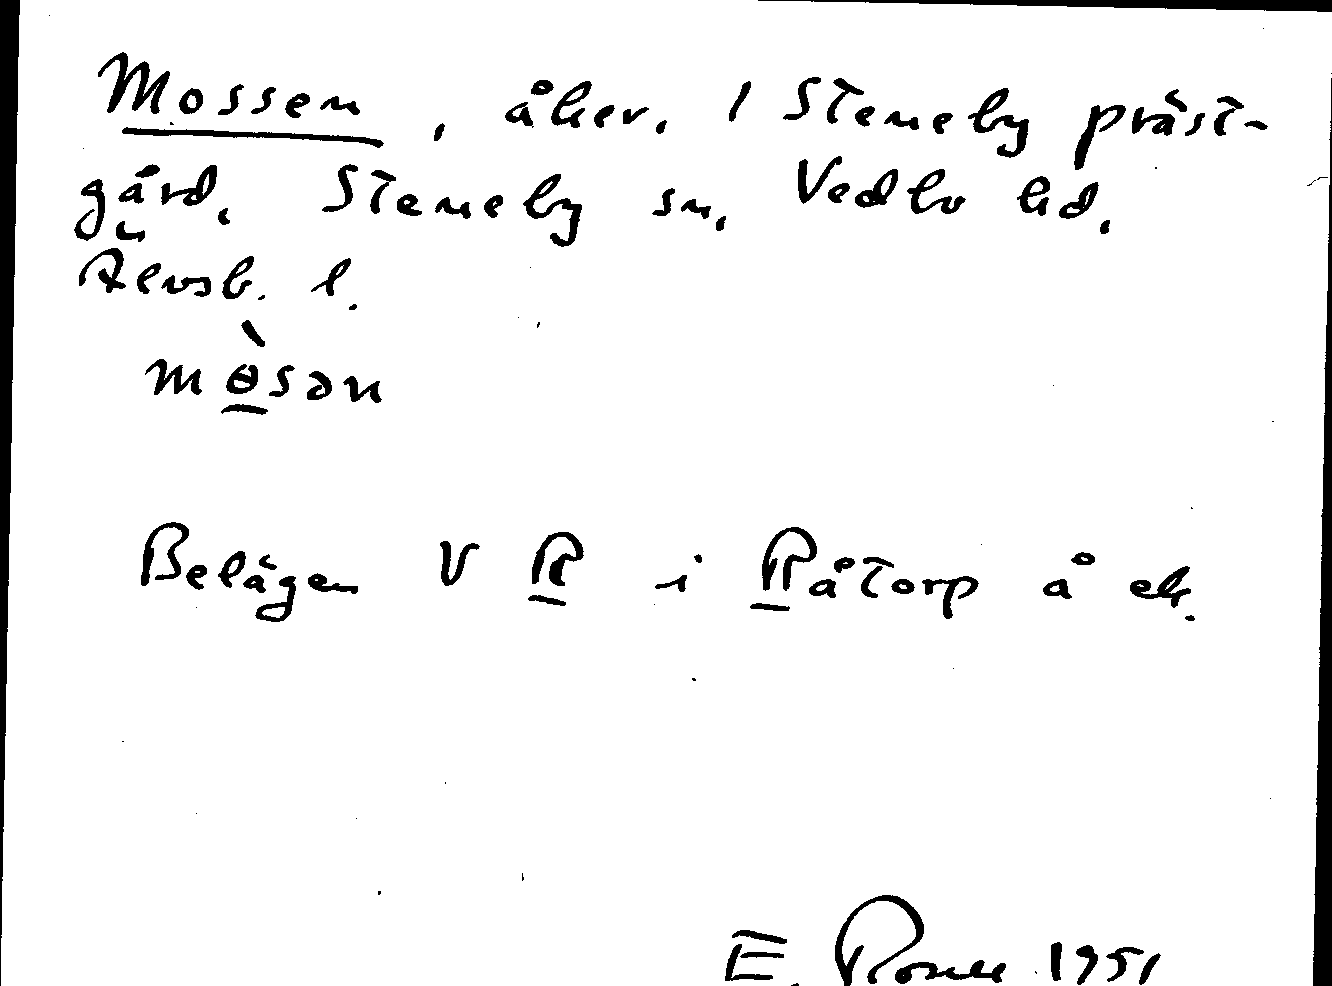 Mossen, åker. 1 Steneby präst-
gård. Steneby sn. Vedbo hd.
Älvsb. l.
mɵ̀sən
Belägen V R i Råtorp å ek.
E. 1951